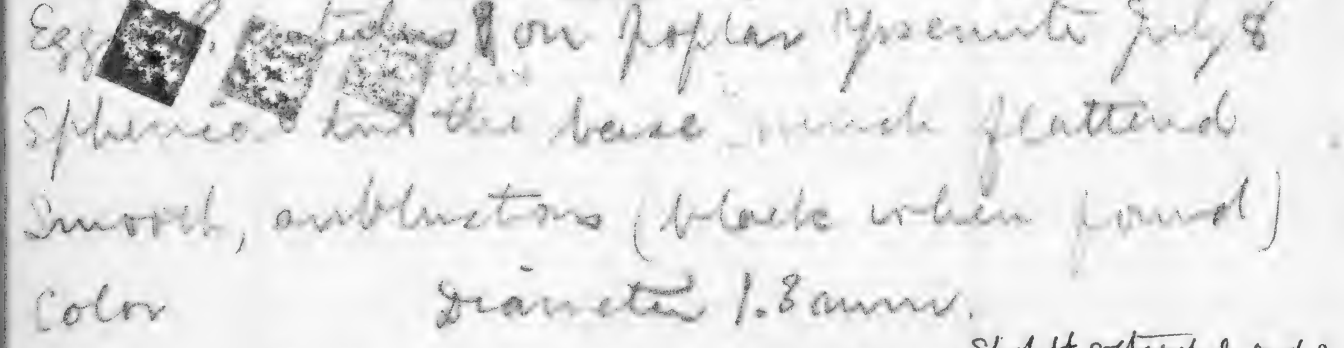 Egg P. rutulus on poplar Yosemite July 8
Spherical but the base much flattend
Smooth, sublustrous (black when found)
Color Diameter 1.3 mm.